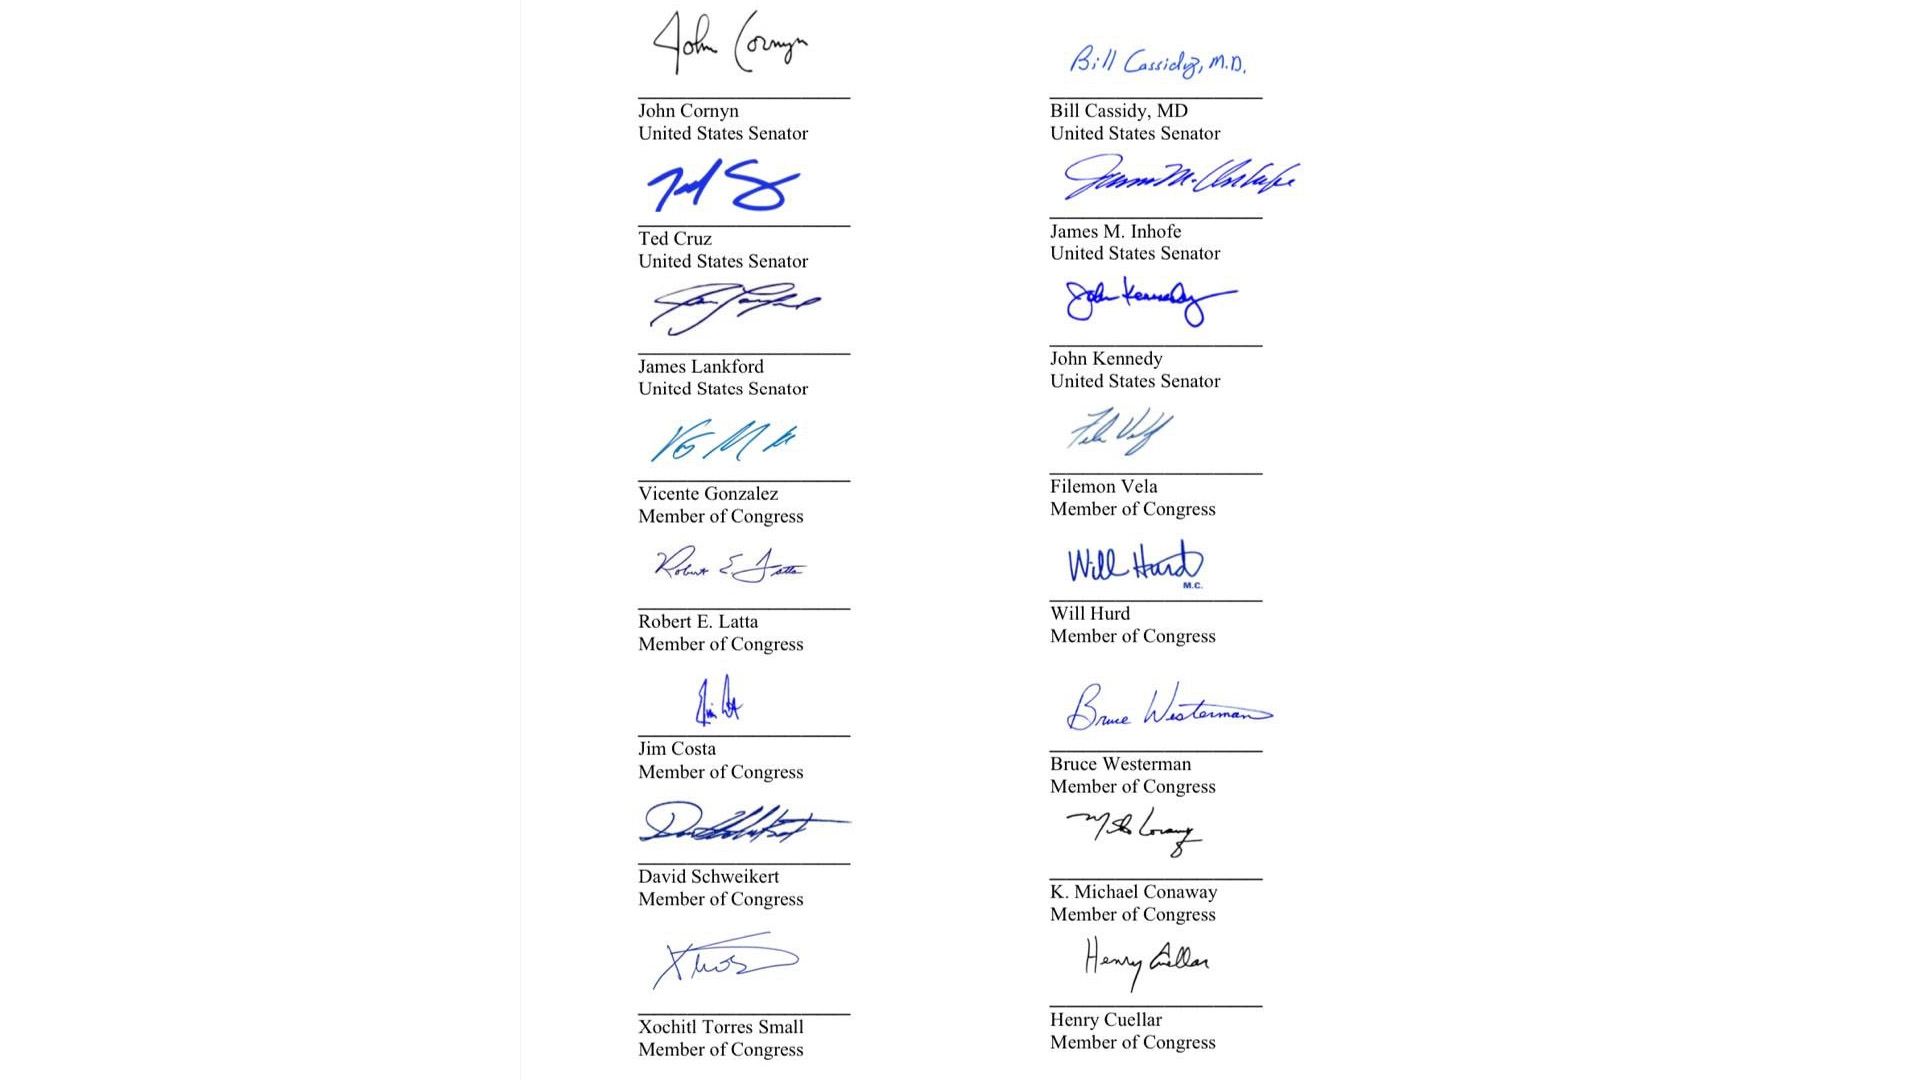 John Cornyn
Bill Cassidy, M.D.
John Cornyn
United States Senator
Bill Cassidy, MD
United States Senator
Ted Cruz
United States Senator
James M. Inhofe
United States Senator
John Kennedy
James Lankford
United States Senator
John Kennedy
United States Senator
Vicente Gonzalez
Member of Congress
Filemon Vela
Member of Congress
Robert E. Latta
Will Hurd
M.C.
Robert E. Latta
Member of Congress
Will Hurd
Member of Congress
Bruce Westerman
Jim Costa
Member of Congress
Bruce Westerman
Member of Congress
David Schweikert
Member of Congress
K. Michael Conaway
Member of Congress
Henry Cuellar
Xochitl Torres Small
Member of Congress
Henry Cuellar
Member of Congress